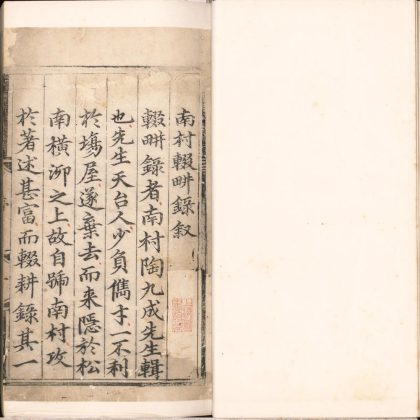 南村輟畊錄叙
輟畊錄者南村陶九成先生輯
也先生天台人少負儁才一不利
於塲屋遂棄去而来隱於松
南橫泖之上故自號南村攻
於著述甚富而輟耕錄其一